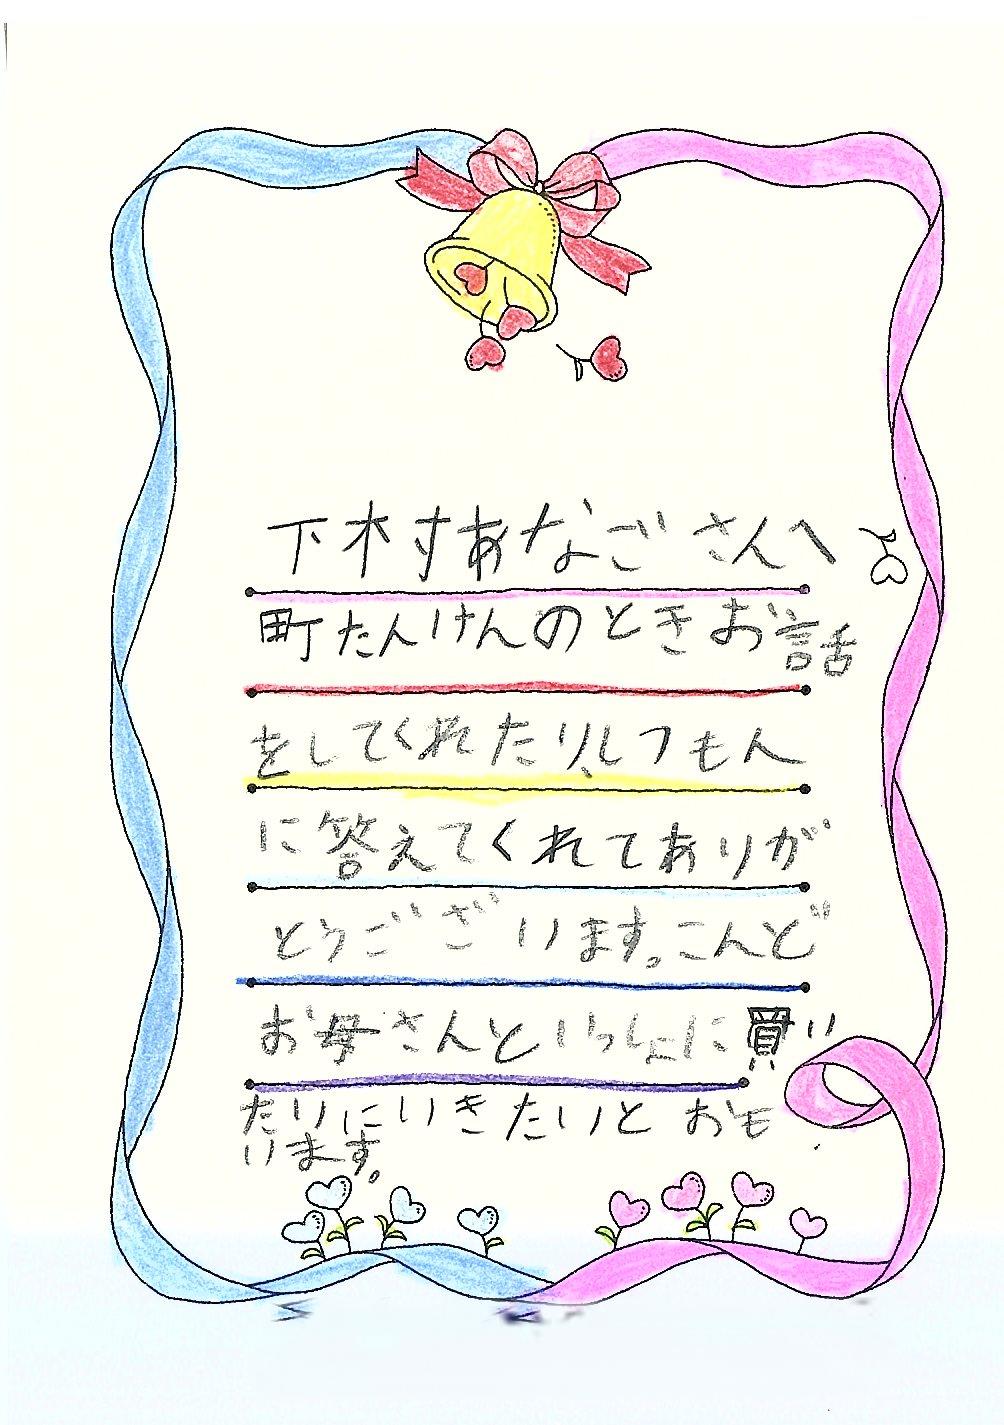 下村あなごさんへ
町たんけんのときお話
をしてくれたり、しつもん
に答えてくれてありが
とうございます。こんど
お母さんといっしょに買い
たりにいきたいとおも
います。